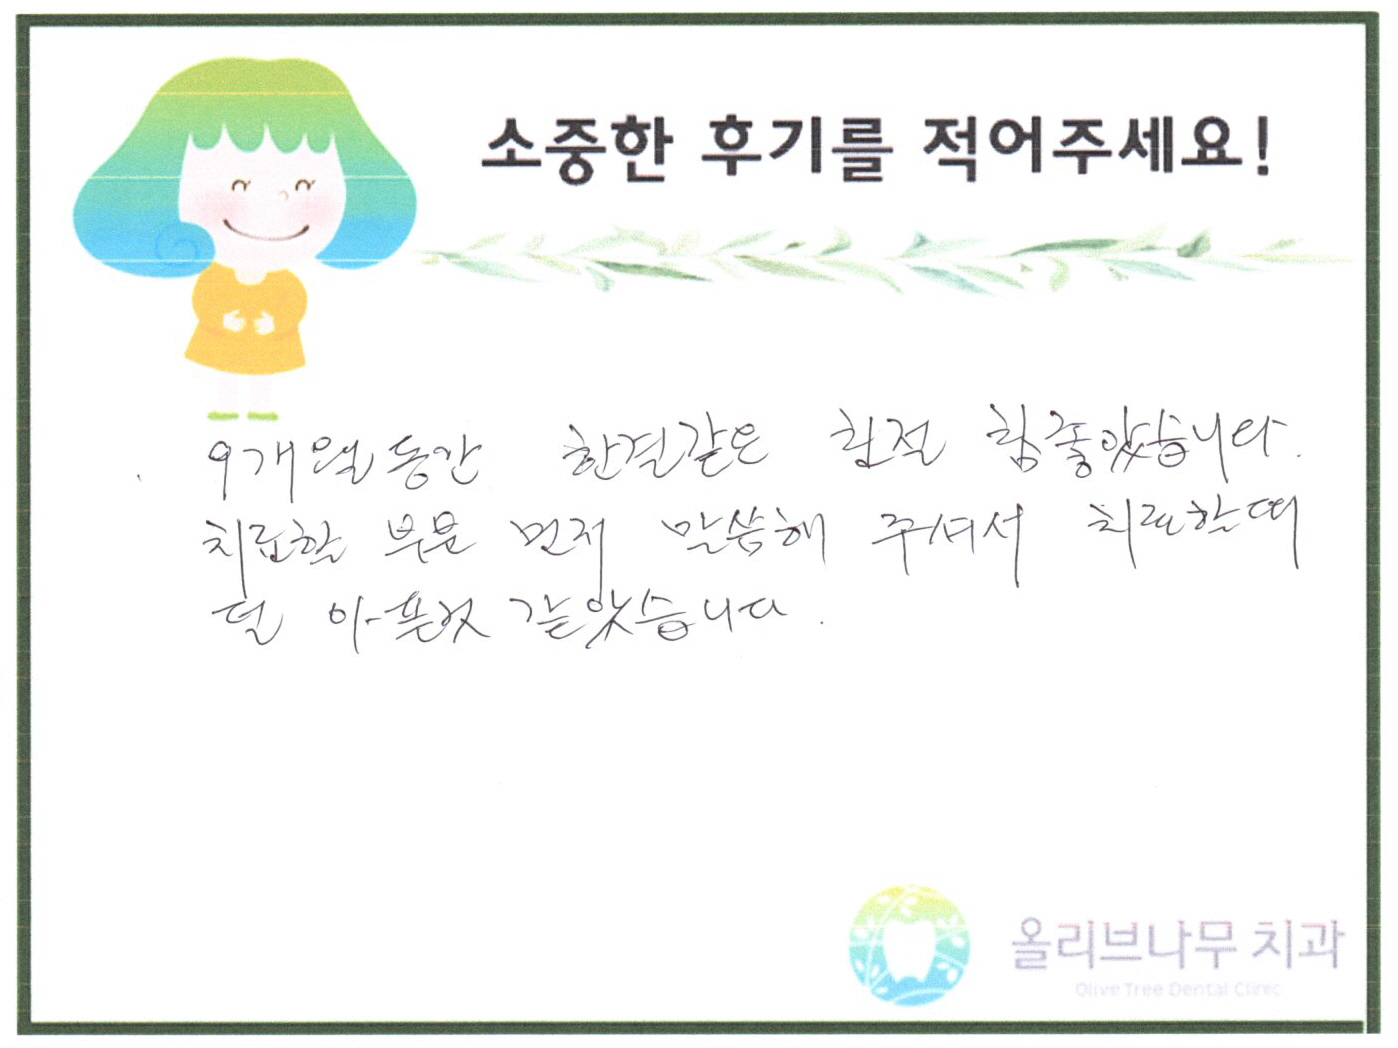 소중한 후기를 적어주세요!
9개월동안 한결같은 친절 참좋았습니다.
치료할 부분 먼저 말씀해 주셔서 치료할때
덜 아픈것 같았습니다.
올리브나무 치과
Olive Tree Dental Clinic